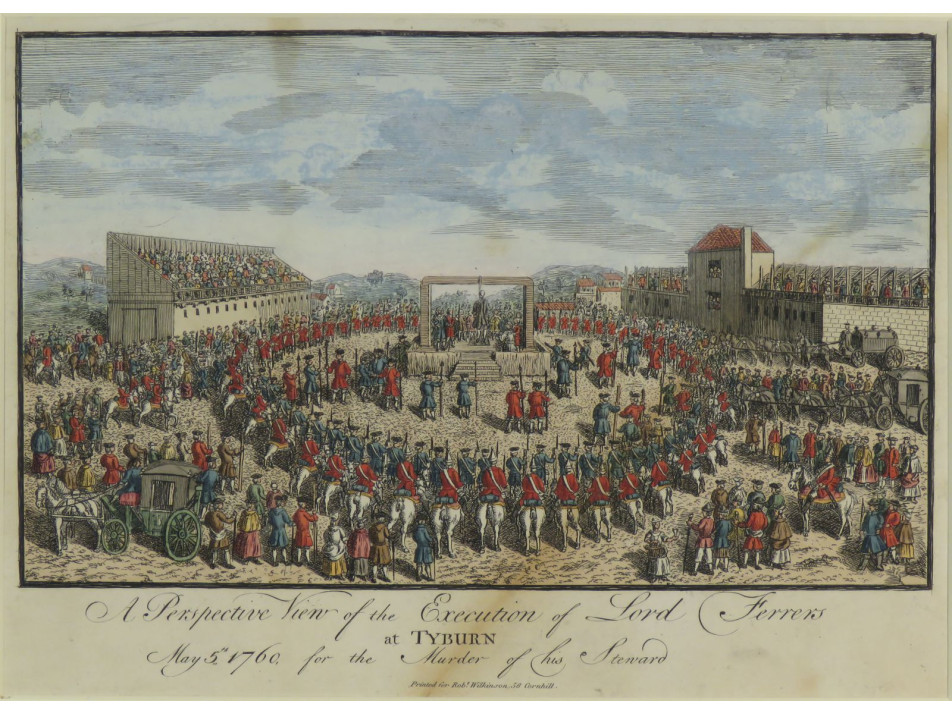 A Perspective View of the Execution of Lord Ferrers
at TYBURN
May 5.th 1760, for the Murder of his Steward
Printed for Robt. Wilkinson, 58 Cornhill.